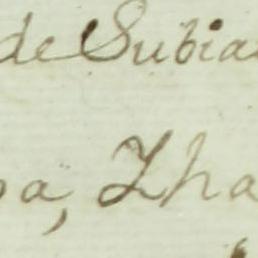 de Subia
pa, Zha